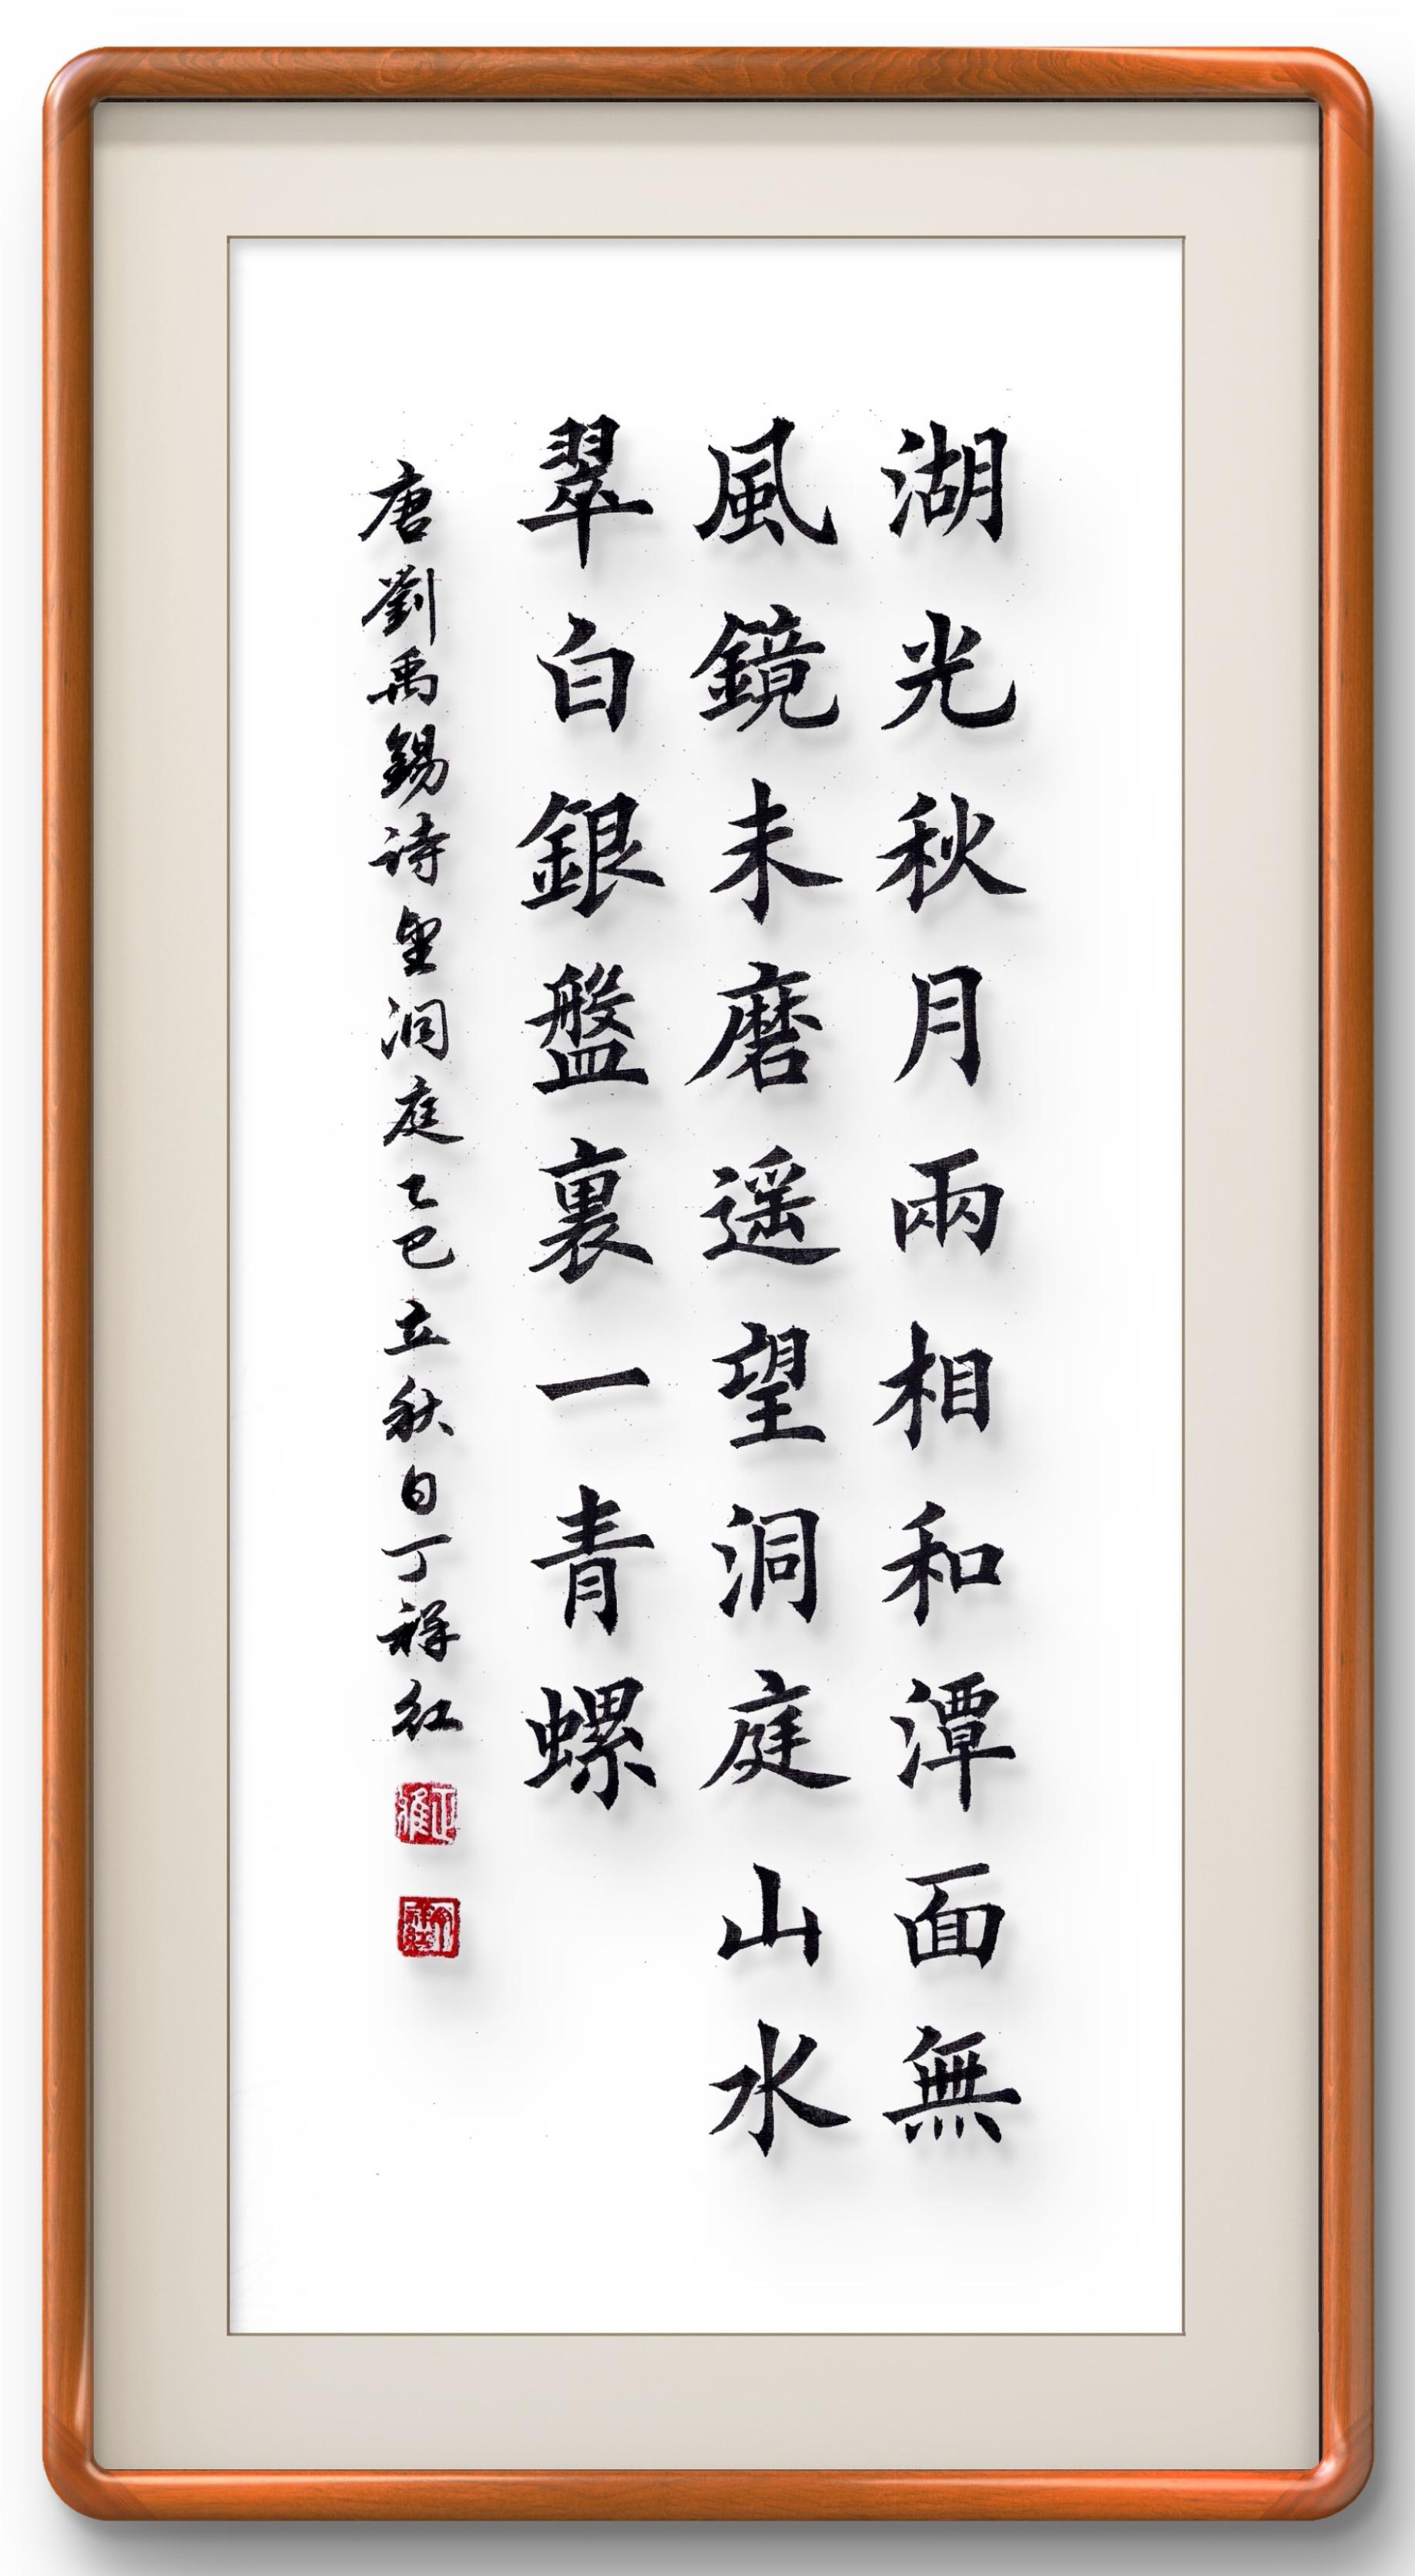 湖光秋月兩相和潭面無
風鏡未磨遥望洞庭山水
翠白銀盤裏一青螺
唐劉禹錫诗望洞庭乙巳立秋日丁祥红